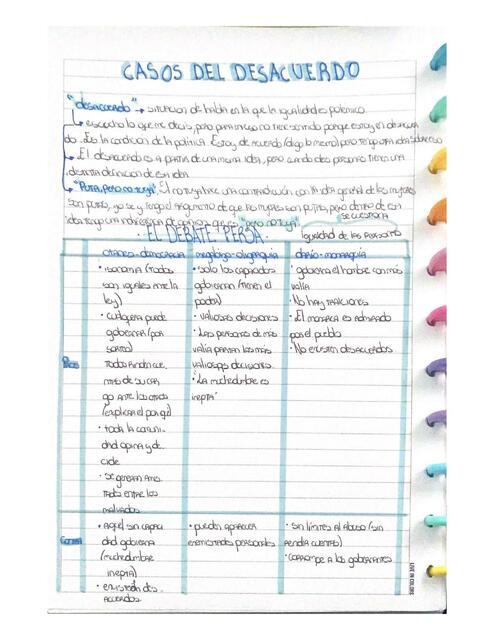 CASOS DEL DESACUERDO
"desacuerdo" → situación de habla en la que la igualdad es polémico.
↳ escucho lo que me decís, pero para mí eso no tiene sentido porque estoy en desacuer
do. Es la condición de la política. Estoy de acuerdo (digo lo mismo) pero tengo otra idea sobre eso
↳ El desacuerdo es a partir de una misma idea, pero cada
distinta definición de esa idea
↳ "Puta, pero no tuya". El no tuya abre una contradicción con la idea general de las mujeres
son putas, yo se y tengo el argumento de que las mujeres son putas, pero dentro de esa
idea "pero no tuya"
se cuestiona
igualdad de las personas
· EL DEBATE PERSA ·
otanes - democracia
megabizo - oligarquía
darío - monarquía
Pros
· isonomia (todos
son iguales ante la
ley)
· cualquiera puede
gobernar (por
sorteo)
· todos rinden cue
ntas de su car
go ante los otros
(explicar el por qé)
· toda la comuni-
dad opina y de
cide
· se generan amis
tades entre los
malvados
· solo los capacitados
gobiernan (tienen el
poder)
· valiosas decisiones
· Las personas de más
valía toman las más
valiosas decisiones.
· "La muchedumbre es
inepta"
· gobierna el hombre con más
valía
· No hay traiciones
· El monarca es admirado
por el pueblo
· No existen desacuerdos
Contras
· Aquel sin capaci
dad gobierna
(muchedumbre
inepta)
· existen des
acuerdos
· pueden aparecer
enemistades personales
· sin límites al abuso (sin
rendir cuentas)
· corrompe a los gobernantes
LIVE IN COLORS